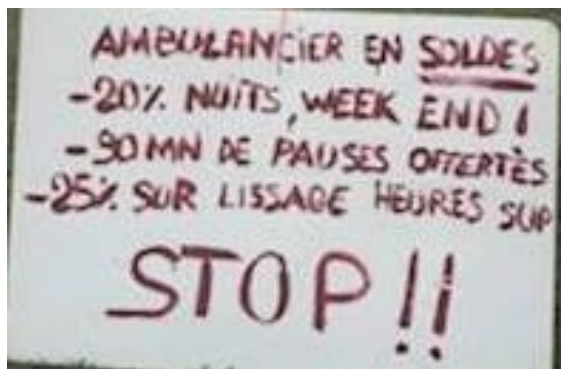 AMBULANCIER EN SOLDES
-20% NUITS, WEEK END !
-90 MN DE PAUSES OFFERTES
-25% SUR LISSAGE HEURES SUP
STOP !!